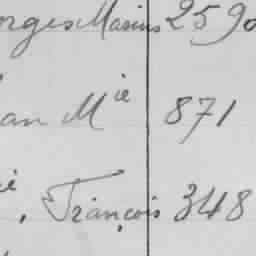 orges Marius 259
an Mie 871
François 348